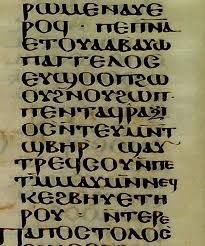 ⲣⲱⲙⲉⲛⲁⲩⲉ
ⲣⲟϥ · ⲡⲉⲡⲛⲁ
ⲉⲧⲟⲩⲁⲁⲃⲁⲩⲱ
ⲡⲁⲅⲅⲉⲗⲟⲥ
ⲉⲩϣⲟⲟⲡϩⲱ
ⲟⲩϩⲛⲟⲩϩⲱⲡ·
ⲡⲉⲛⲧⲁϥⲣⲁⲝⲓ
ⲟⲥⲛⲧⲉⲩⲙⲛⲧ
ϣⲃⲏⲣ ϣⲁⲩ
ⲧⲣⲉⲩⲥⲟⲩⲛⲡⲉ
ⲧⲙⲙⲁⲩⲙⲛⲛⲉϥ
ⲕⲉϩⲃⲏⲩⲉⲧⲏ
ⲣⲟⲩ · ⲛⲧⲉⲣⲉ
ⲡⲁⲡⲟⲥⲧⲟⲗⲟⲥ